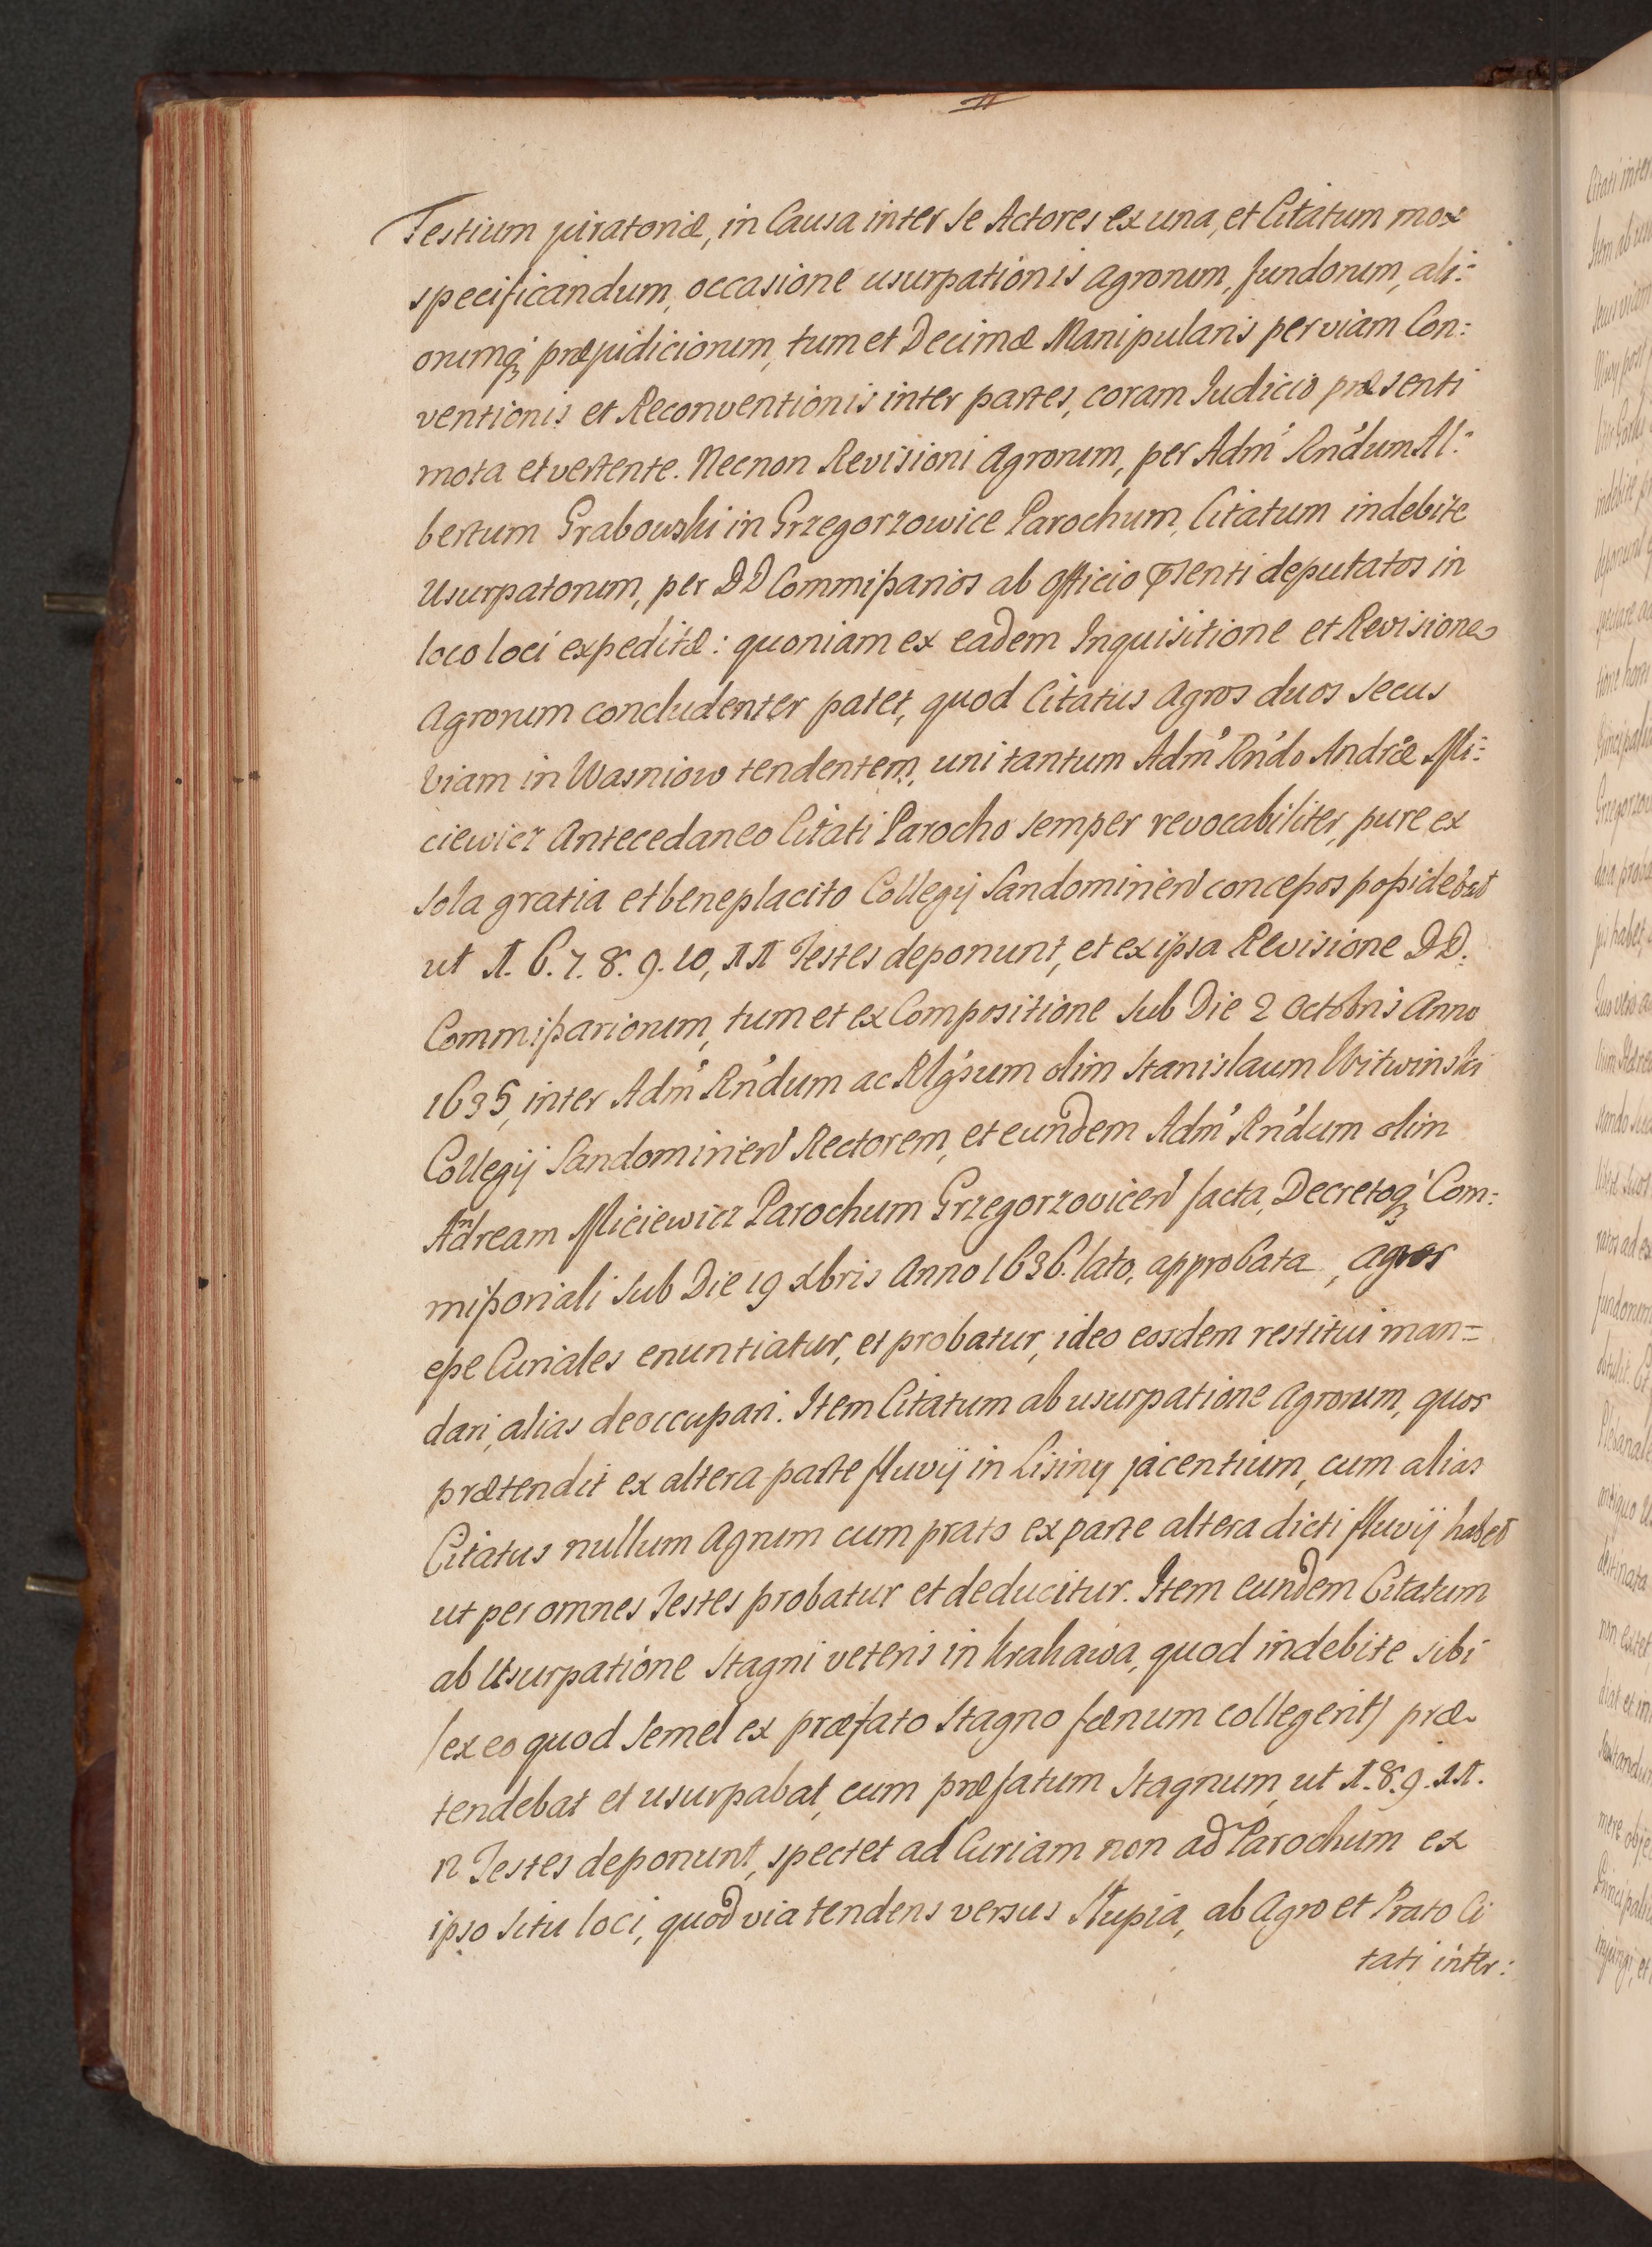 Testium juratoriæ, in Causa inter se Actores ex una, et Citatum mox
specificandum, occasione usurpationis agrorum, fundorum, ali:
orumq3 præjudiciorum, tum et Decimæ Manipularis per viam Con:
ventionis et Reconventionis inter partes, coram Judicio præsenti
mota et vertente. Necnon Revisioni Agrorum, per Adm' Rn'dum Al:
bertum Grabowski in Grzegorzowice Parochum, Citatum indebite
Usurpatorum, per DD Commißarios ab officio pr̄senti deputatos in
loco loci expeditæ: quoniam ex eadem Inquisitione et Revisione
Agrorum concludenter patet, quod Citatus Agros duos secus
viam in Wasniow tendentem, uni tantum Adm' Rn'do Andreæ Mi:
ciewicz Antecedaneo Citati Parocho semper revocabiliter, pure ex
sola gratia et beneplacito Collegij Sandomirien' conceßos poßidebat
ut 1. 6. 7. 8. 9. 10, 11 Testes deponunt, et ex ipsa Revisione DD.
Commißariorum, tum et ex Compositione sub Die 2 octobris Anno
1635, inter Adm' Rn'dum ac Rlg'sum olim Stanislaum Witwinski
Collegij Sandomirien' Rectorem, et eundem Adm' Rn'dum olim
Andream Miciewicz Parochum Grzegorzovicen' facta, Decretoq3 Com:
mißoriali sub Die 19 Xbris Anno 1636. lato, approbata, agros
eße Curiales enuntiatur, et probatur, ideo eosdem restitui man=
dari, alias deoccupari. Item Citatum ab usurpatione Agrorum, quos
prætendit ex altera parte fluvij in Lisiny jacentium, cum alias
Citatus nullum Agrum cum prato ex parte altera dicti fluvij habet
ut per omnes Testes probatur et deducitur. Item eundem Citatum
ab Usurpatione Stagni veteris in Krakawa, quod indebite sibi
/ex eo quod semel ex præfato Stagno fænum collegerit/ præ-
tendebat et usurpabat, cum præfatum Stagnum, ut 1. 8. 9. 11.
12 Testes deponunt, spectet ad Curiam non ad Parochum ex
ipso situ loci, quod via tendens versus Słupia, ab Agro et Prato Ci
tati inter: